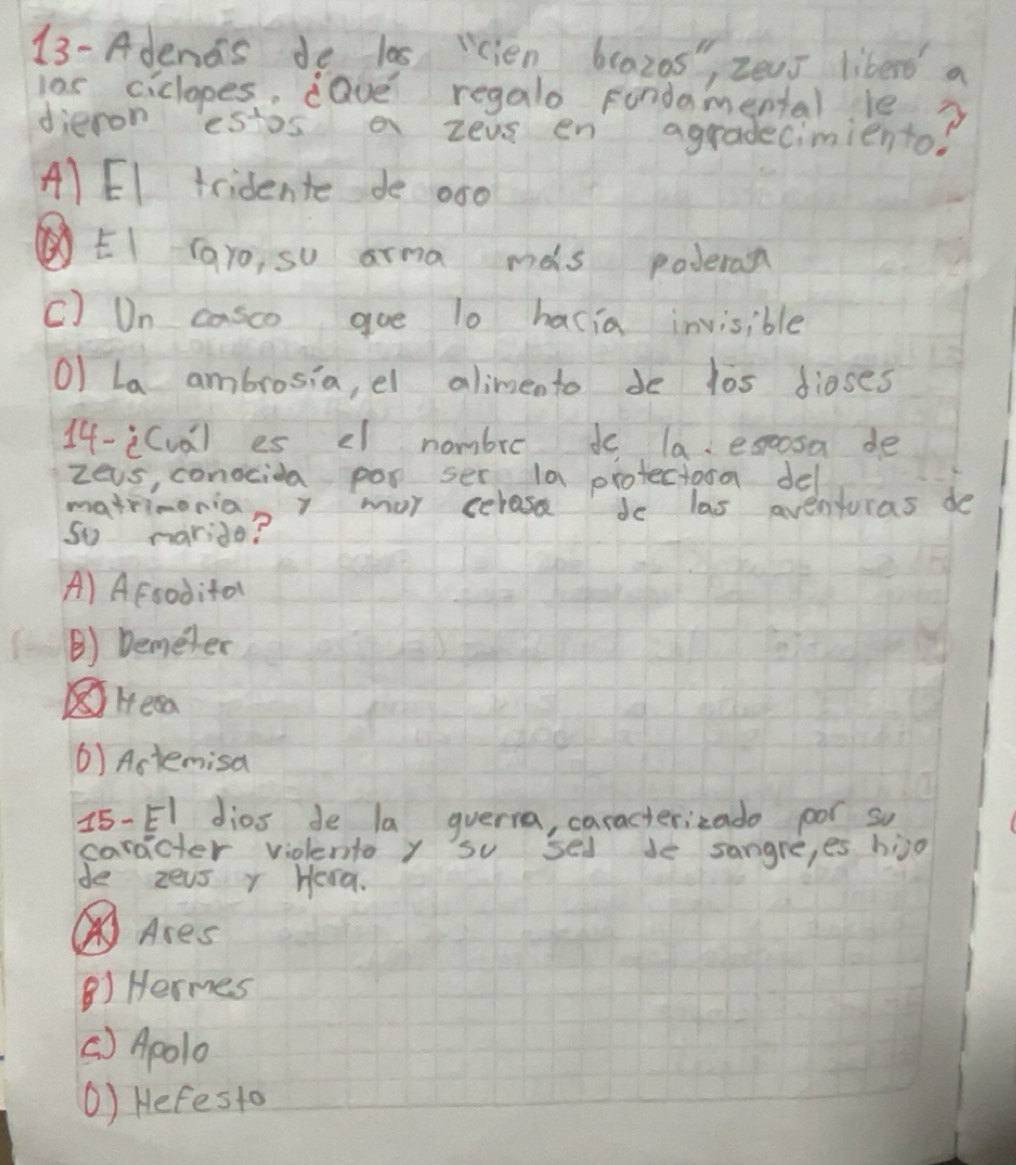 13-Además de los "cien brazos", zeus liberó a
los cíclopes. ¿Qué regalo fundamental le
dieron estos a zeus en agradecimiento?
A) El tridente de oro
B) El rayo, su arma más poderosa
C) Un casco que lo hacía invisible
D) La ambrosía, el alimento de los dioses
14-¿Cuál es el nombre de la esposa de
zeus, conocida por ser la protectora del
matrimonia y muy celosa de las aventuras de
su marido?
A) Afrodita
B) Deméter
C) Hera
D) Artemisa
15-El dios de la guerra, caracterizado por su
carácter violento y su sed de sangre, es hijo
de zeus y Hera.
A) Ares
B) Hermes
C) Apolo
D) Hefesto